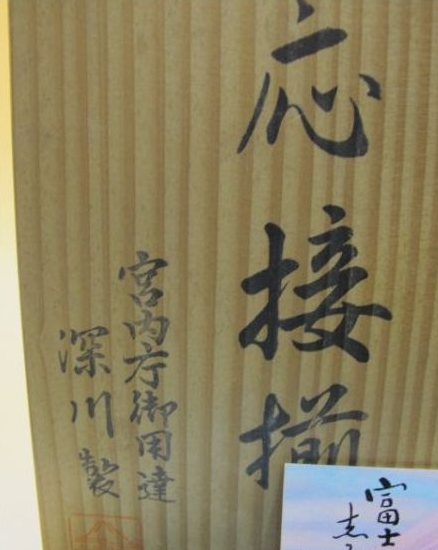 応接揃
宮内庁御用達
深川製
富士